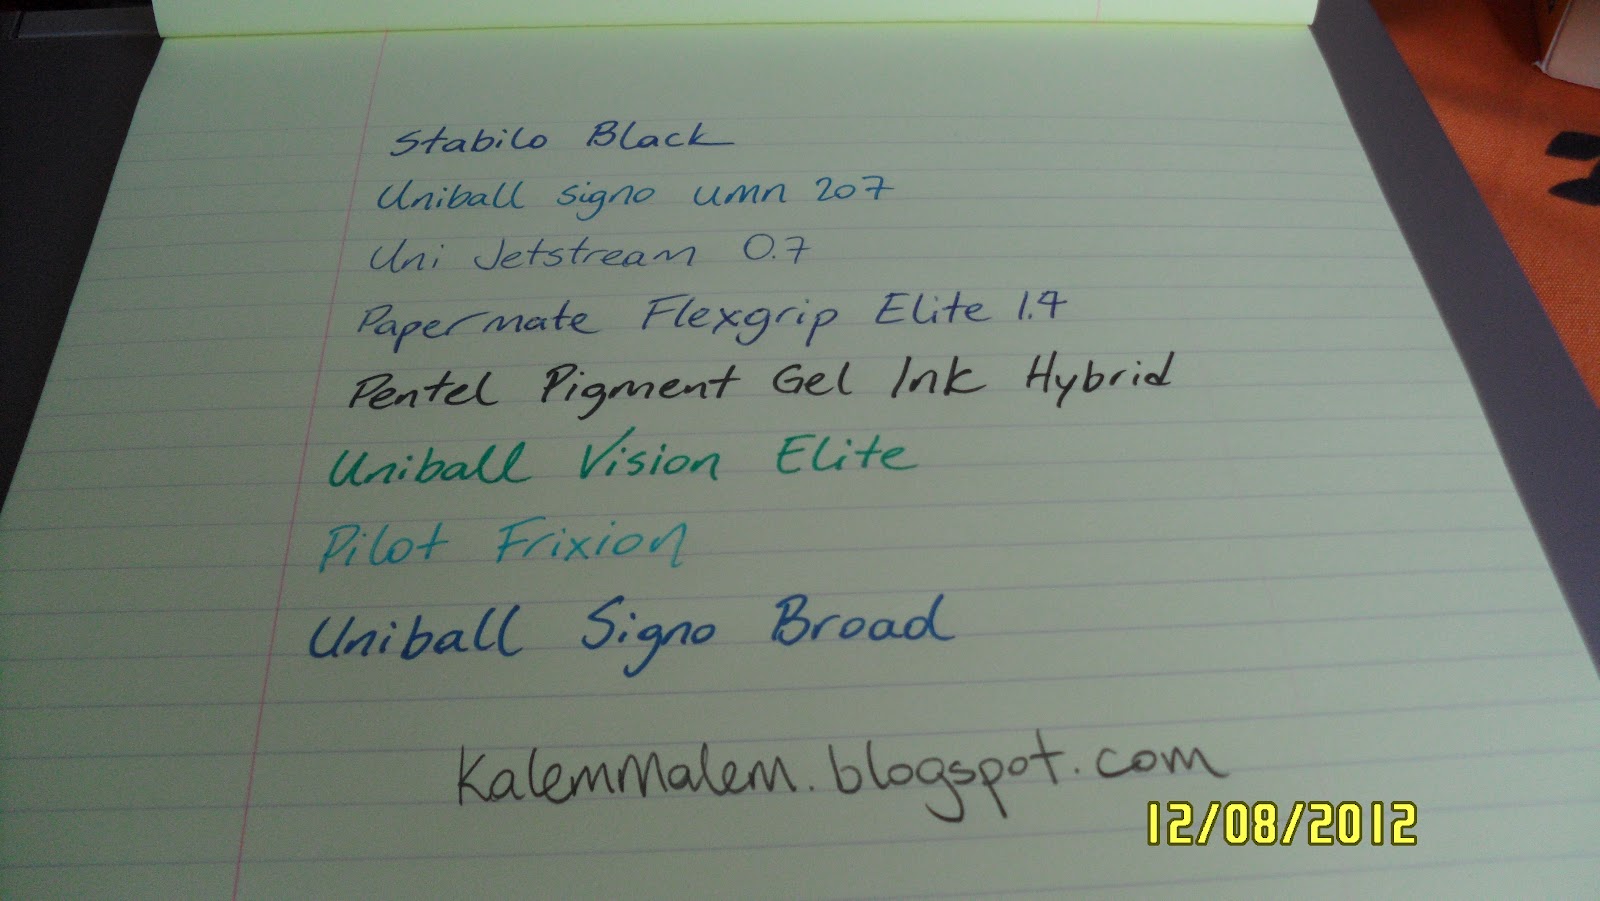 Stabilo Black
Uniball signo umn 207
Uni Jetstream 0.7
Papermate Flexgrip Elite 1.4
Pentel Pigment Gel Ink Hybrid
Uniball Vision Elite
Pilot Frixion
Uniball Signo Broad
KalemMalem.blogspot.com
12/08/2012